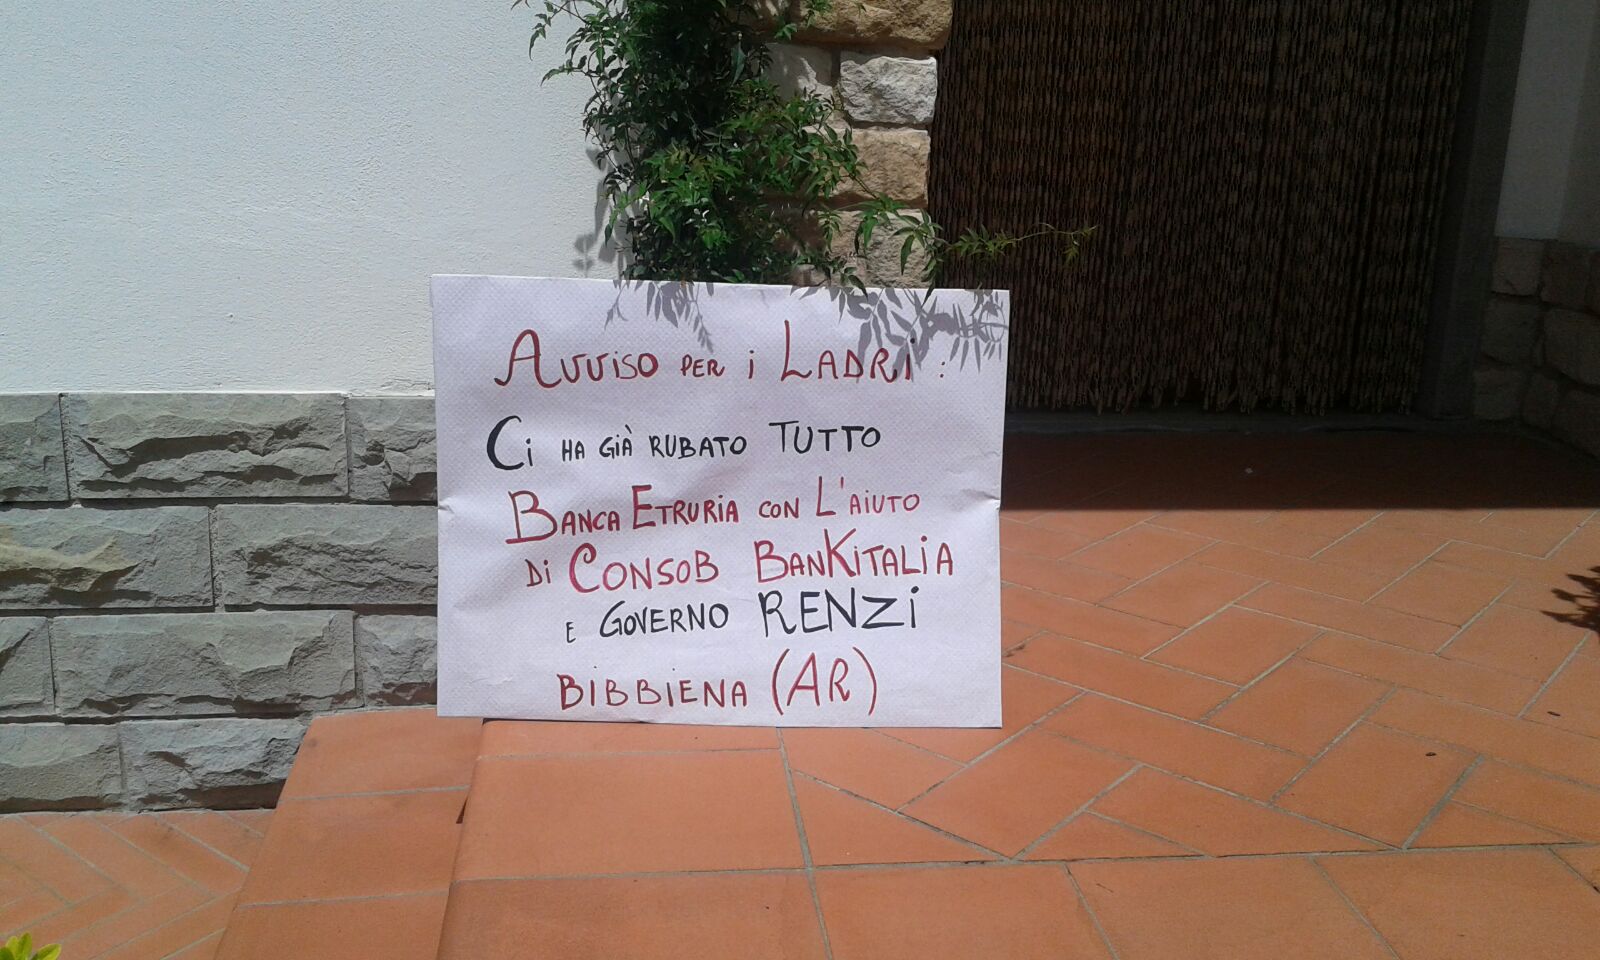 Avviso per i Ladri:
Ci ha già rubato tutto
Banca Etruria con L'aiuto
di Consob BanKitalia
e Governo RENZi
BiBBiENA (AR)